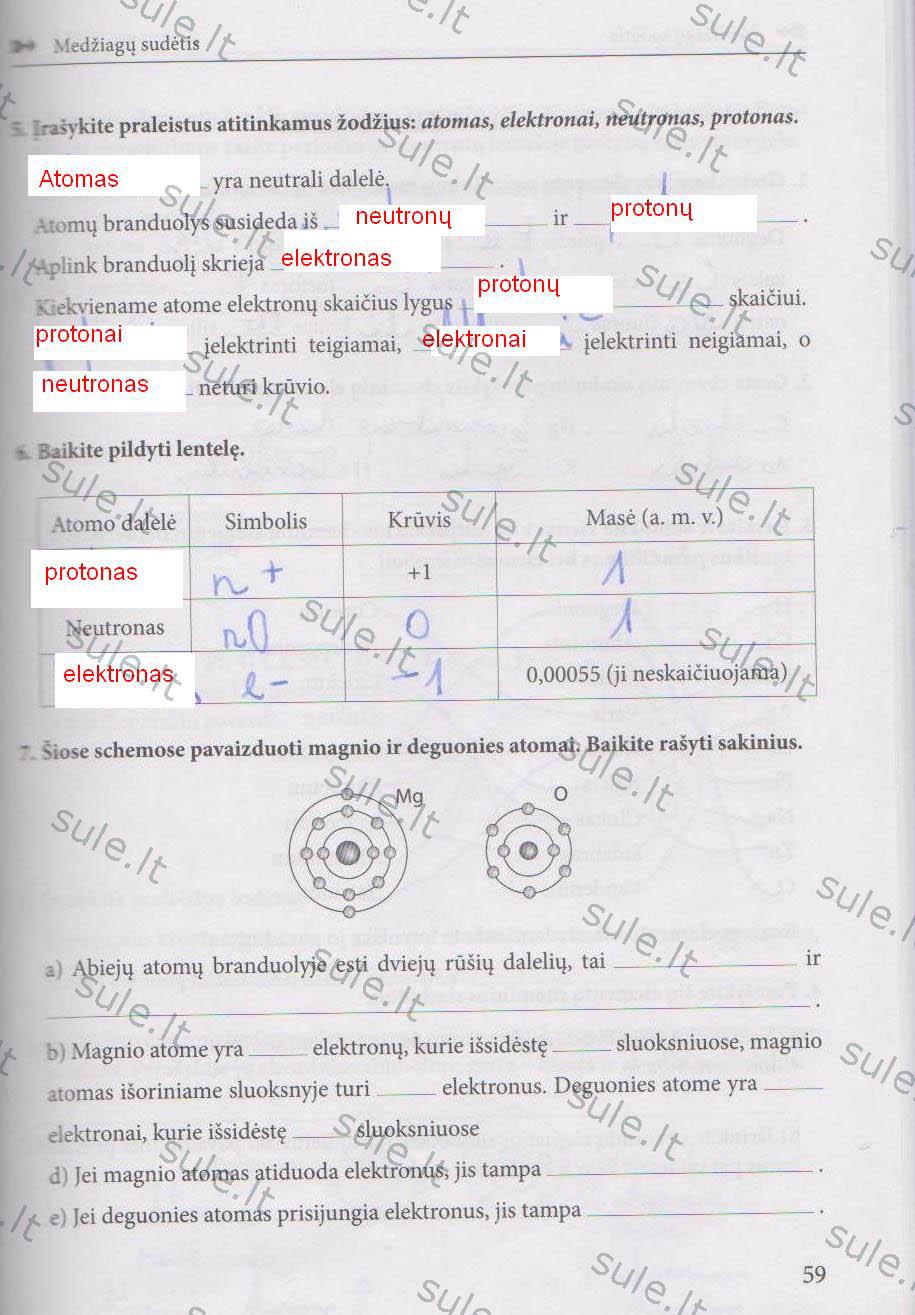 Medžiagų sudėtis
5. Įrašykite praleistus atitinkamus žodžius: atomas, elektronai, neutronas, protonas.
Atomas yra neutrali dalelė.
Atomų branduolys susideda iš neutronų ir protonų .
Aplink branduolį skrieja elektronas .
Kiekviename atome elektronų skaičius lygus protonų skaičiui.
protonai įelektrinti teigiamai, elektronai įelektrinti neigiamai, o
neutronas neturi krūvio.
6. Baikite pildyti lentelę.
Atomo dalelė Simbolis Krūvis Masė (a. m. v.)
protonas n + +1 1
Neutronas n0 0 1
elektronas e- -1 0,00055 (ji neskaičiuojama)
7. Šiose schemose pavaizduoti magnio ir deguonies atomai. Baikite rašyti sakinius.
Mg O
a) Abiejų atomų branduolyje esti dviejų rūšių dalelių, tai ir
.
b) Magnio atome yra elektronų, kurie išsidėstę sluoksniuose, magnio
atomas išoriniame sluoksnyje turi elektronus. Deguonies atome yra
elektronai, kurie išsidėstę sluoksniuose
d) Jei magnio atomas atiduoda elektronus, jis tampa .
e) Jei deguonies atomas prisijungia elektronus, jis tampa .
59
sule.lt